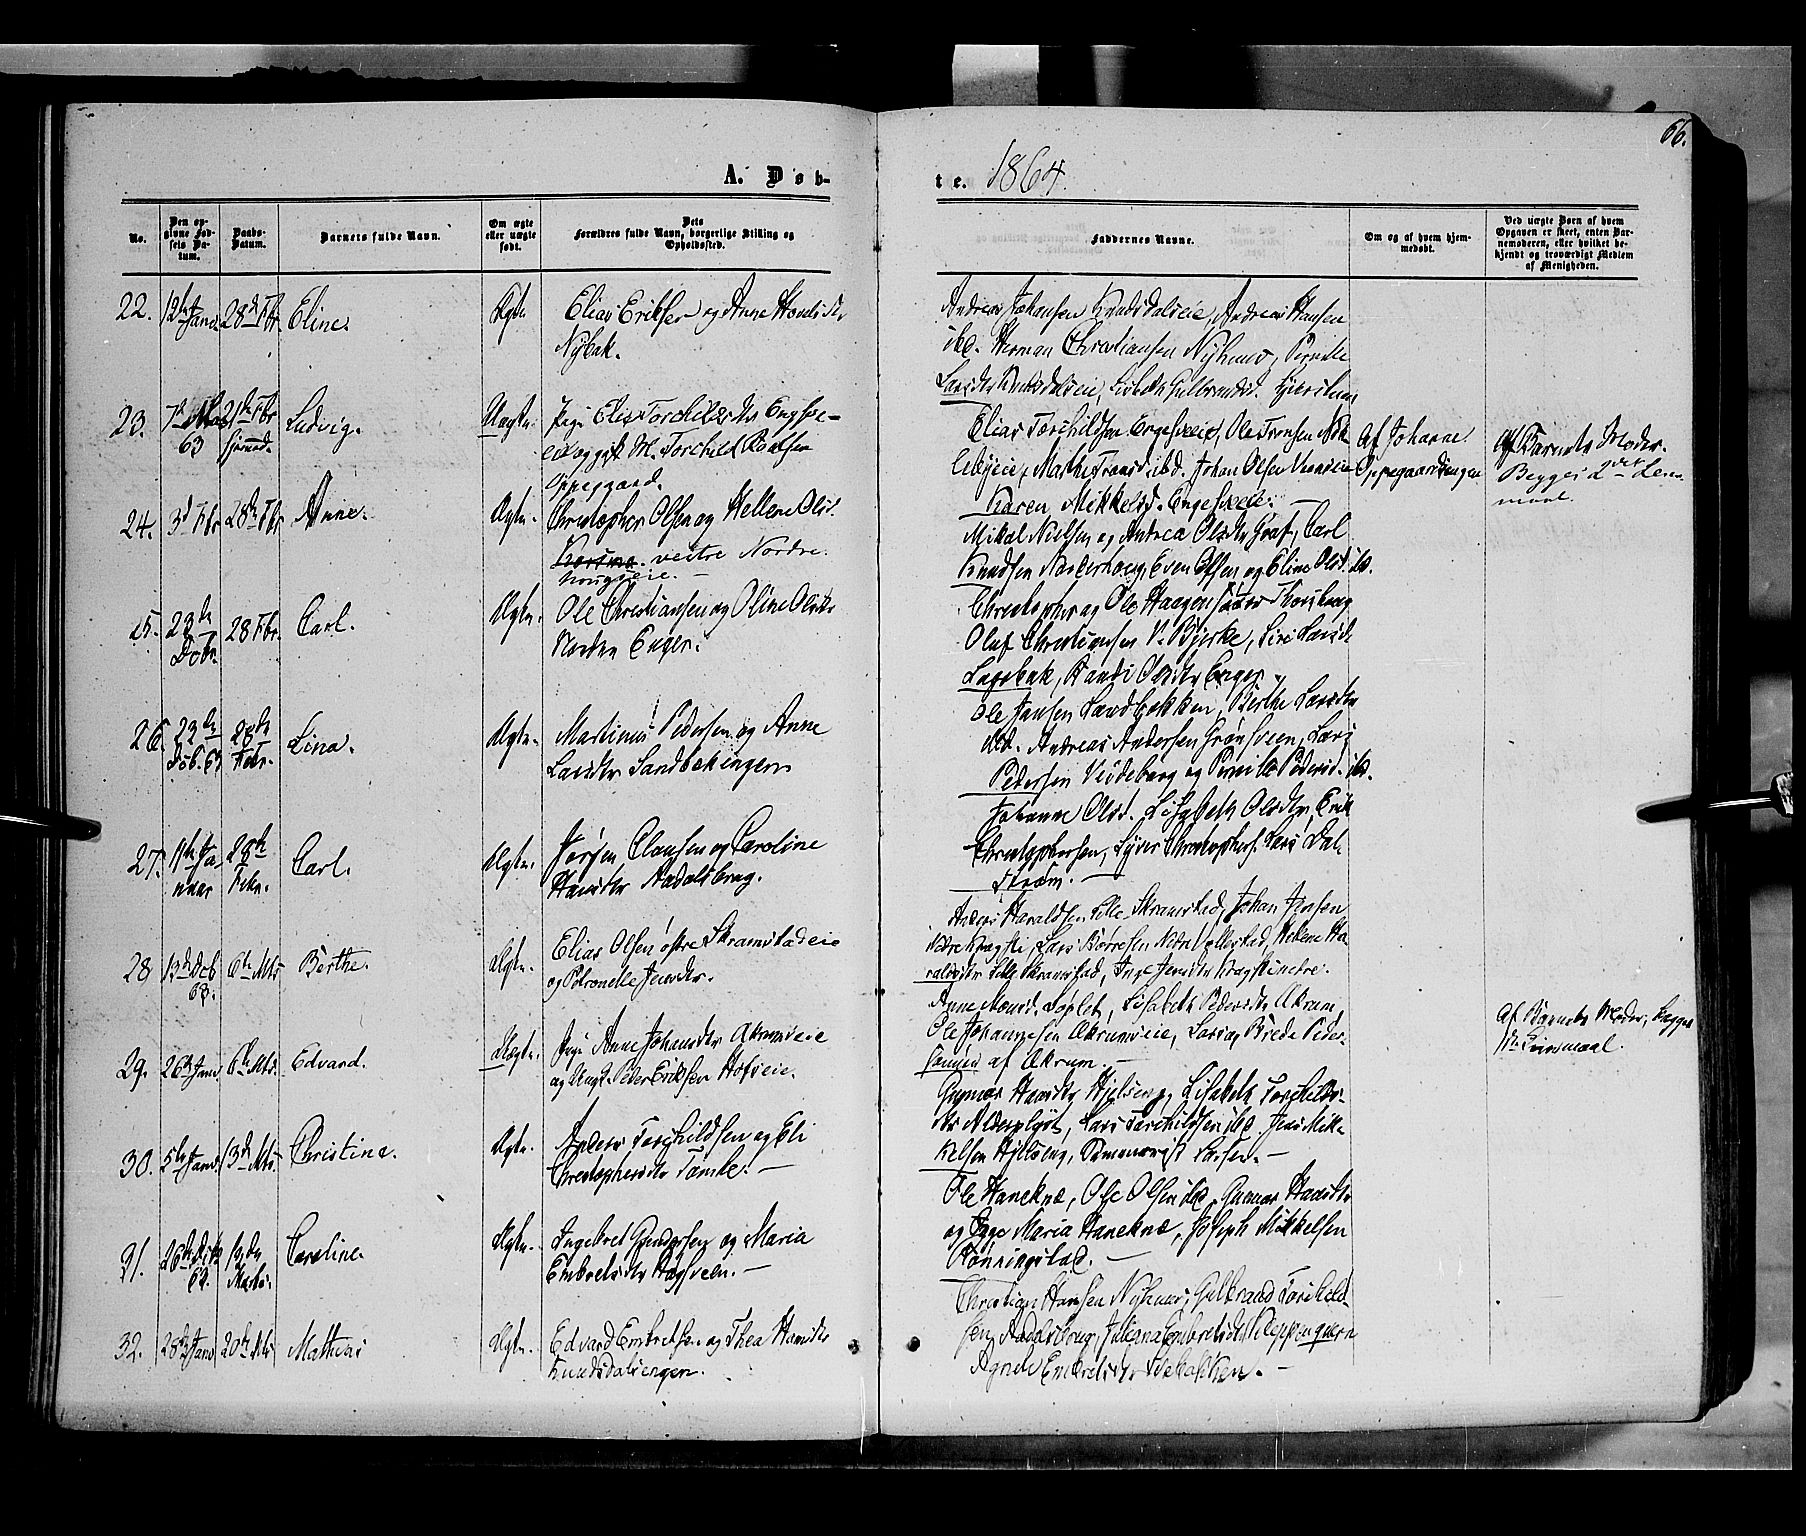 66.
A. Døb-
te. 1864.
No.
Den op-
givne Fød-
sels Da-
tum.
Daabs-
Datum.
Barnets fulde Navn.
Om ægte
eller uægte
født.
Dets
Forældres fulde Navn, borgerlige Stilling og
Opholdssted.
Faddernes Navne.
Om og af hvem hjem-
medøbt.
Ved uægte Børn af hvem
Opgaven er skeet, enten Bar-
nemoderen, eller hvilket be-
kjendt og troværdigt Medlem
af Menigheden.
22. 12te Janr. 28de Fbr Eline. Ægte. Elias Eriksen og Anne
Nybak.
Andreas Johansen Knudsdalseie, Andreas Hansen
ibd. Herman Christiansen Nyhuus, Pernille
Larsdtr Knudsdalseie, Lisbeth Gulbrandsd.
23. 7de 63 21de Fbr Ludvig. Uægte. Pige Torchildsdtr
M. Torchild
Oppegaard.
Elias Torchildsen Engesveeie, Ole
Johan Olsen
Karen Mikkelsd. Engesveeie. —
Af Johanne
Oppegaardsengen
Af Barnets Moder.
Begges 2det Leier-
maal.
24. 3d Fbr 28de Fbr Anne. Ægte. Christopher Olsen og Hellene Olsd.
vestre Nordre-
Mikal Nielsen og Andrea Olsdtr Graf, Carl
Knudsen Even Olsen og Eline Olsd. ibd.
25. 23de Dcbr. 28 Fbr. Carl. Ægte. Ole Christiansen og Oline Olsdtr
Nordre Enger.
Christopher og Ole Haagensønner
Oluf Christiansen V. Bjerke, Siri Larsdtr
Olsdtr Enger
26. 23de Dcb. 63 28de Febr. Lina. Ægte. Martinus Pedersen og Anne
Larsdtr Sandbekengen
Ole Jansen Sandbækken, Berthe Larsdtr
ibd. Andreas Andersen Grønsveen, Lars
Pedersen og Pernille Pedersd. ibd.
27. 11te Ja-
nuar 28de
Febr. Carl. Ægte. Jørgen Clausen og Caroline
Hansdtr Aadalsbrug.
Johanne Olsd. Lisabeth Olsdtr, Erik
Christophersen, Syver Christophers. Lars Dal-
strøm. —
28 13de Dcb
63. 6te Mts Berthe. Ægte. Elias Olsen østre Skramstadeie
og Petronelle Jensdtr.
Anders Haraldsen Lille Skramstad, Johan Jensen
nedre Kragske, Lars Børresen Nedre Vollestad, Helene Ha-
raldsdtr Lille Skramstad, Inge Jensdtr Kragske nedre.
29. 26de Janr 6te Mts. Edvard. Uægte. Pige Anne Johansdtr Akrumeie
og Ungk. Peder Eriksen Hofseie.
Anne Løplet, Lisabeth Pedersdtr Akrum,
Ole Johannesen Akrumseie, Lars og Brede Peder-
sønner af Akrum. —
Af Barnets Moder, begges
1ste Leiermaal.
30. 5te Janr 13de Mts. Christine. Ægte. Anders Torchildsen og Eli
Christophersdtr Tømte. —
Gunnor Hansdtr Hjelseng, Lisabeth Torchilds-
dtr Alderslyst, Lars Torchildsen ibd. Jens Mik-
kelsen Hjelseng, Larsen. —
31. 26de Dcb
63. 13de
Marts. Caroline. Ægte. Ingebret Gundersen og Maria
Embretsdtr Hagsveen. —
Ole Hanekne, Ole Olsen ibd. Gunnor Hansdtr
og Pige Maria Hanekne, Joseph Mikkelsen
Rønningstad. —
32. 28de Janr 20de Mts Mathias Ægte. Edvard Embretsen og Thea Hansdtr
Knudsdalsengen.
Christian Hansen Nyhuus, Gulbrand Torchild-
sen, Aadalsbrug, Juliana Embretsdtr Kleppenquern
Agnete Embretsdtr —